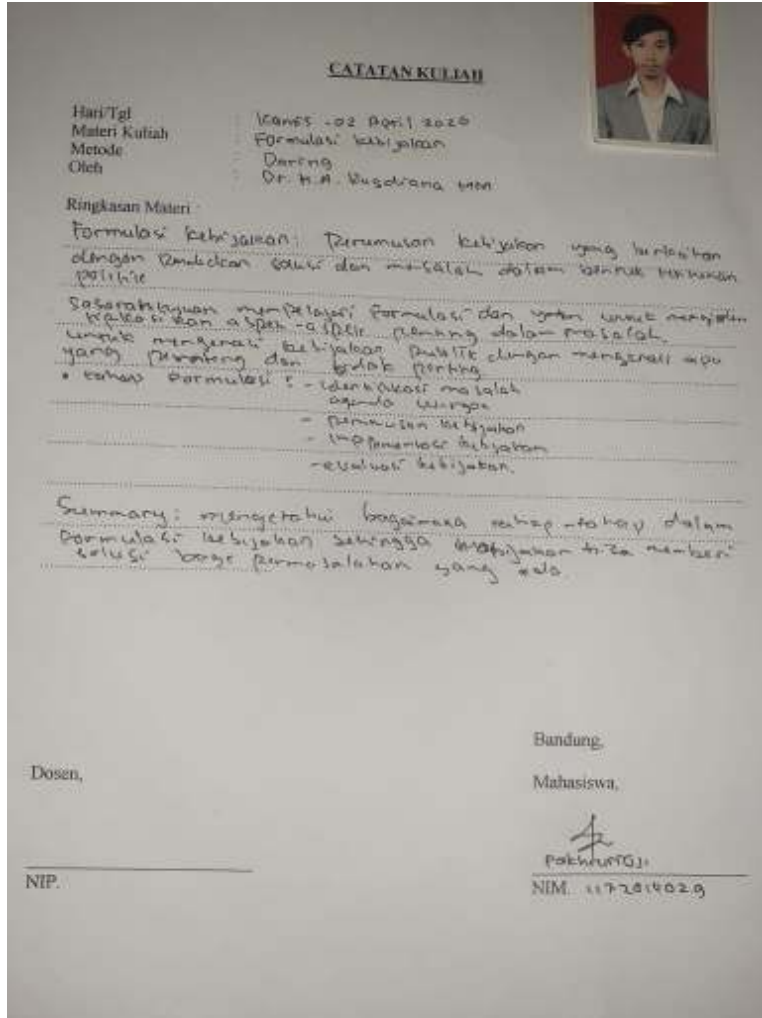 CATATAN KULIAH
Hari/Tgl : Kamis - 02 April 2020
Materi Kuliah : Formulasi kebijakan
Metode : Daring
Oleh : Dr. H.A. Rusdiana MM
Ringkasan Materi :
Formulasi kebijakan: Perumusan kebijakan yang berkaitan
dengan solusi dan masalah dalam bentuk
politik
mempelajari formulasi dan untuk
aspek-aspek penting dalam masalah.
untuk mengenali kebijakan publik dengan mengenali apa
yang penting dan tidak penting
• tahap formulasi : - identifikasi masalah
agenda
- perumusan kebijakan
- implementasi kebijakan
- evaluasi kebijakan.
Summary: mengetahui bagaimana tahap-tahap dalam
formulasi kebijakan sehingga bisa memberi
solusi bagi permasalahan yang ada.
Bandung,
Dosen,
Mahasiswa,
NIP.
NIM. 1172014029